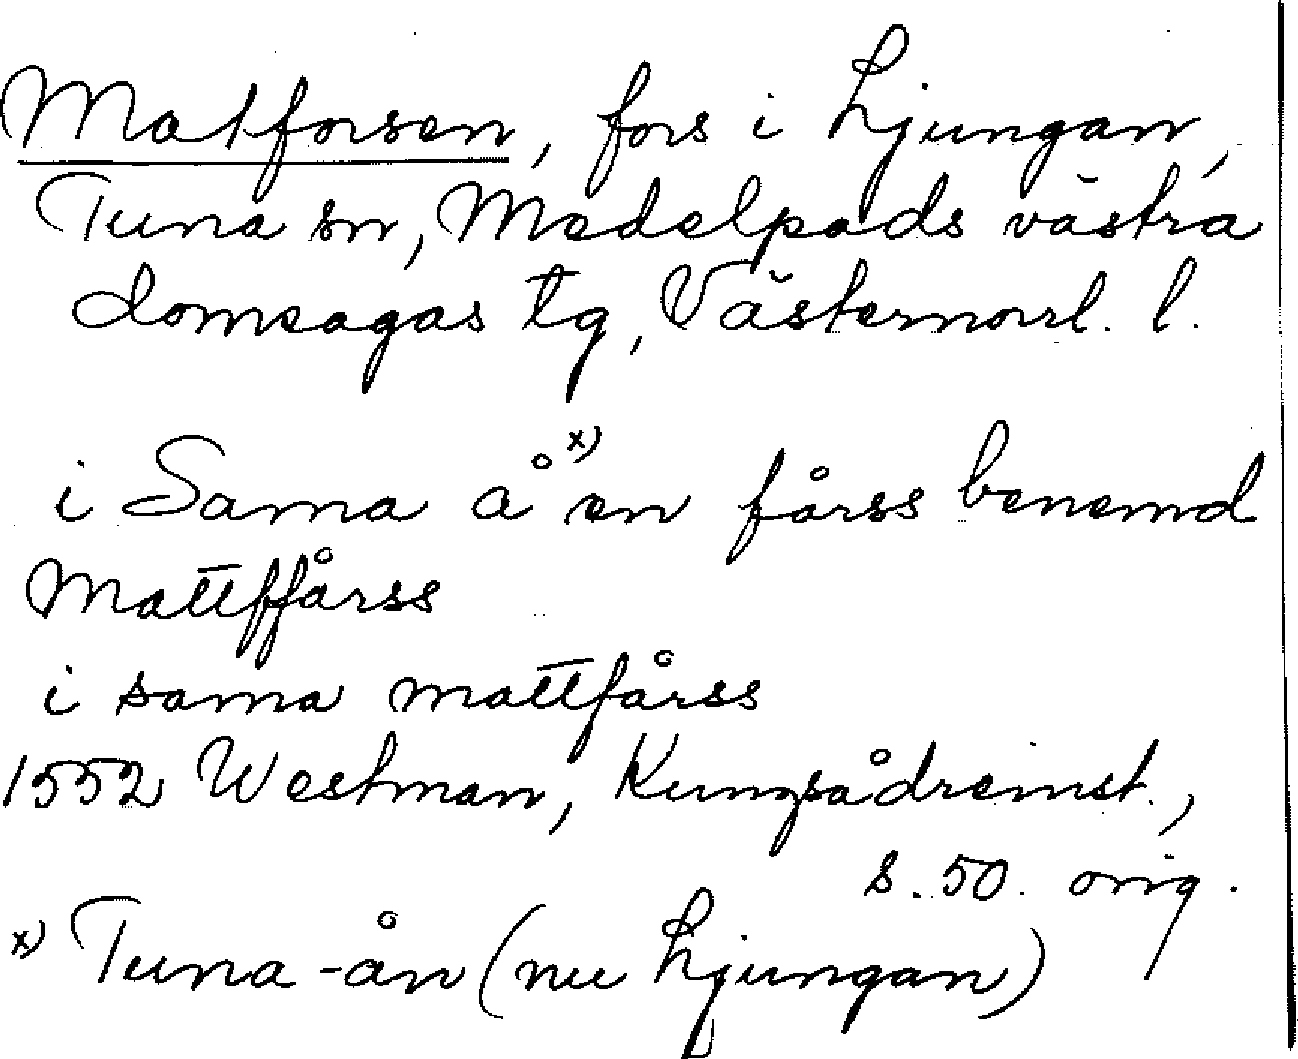 Matforsen, fors i Ljungan,
Tuna sn, Medelpads västra
domsagas tg, Västernorrl. l.
i Sama å x) en fårss benemd
Mattffårss
i sama mattfårss
1552 Westman, Kungsådreinst.,
s. 50. orig.
x) Tuna-ån (nu Ljungan)